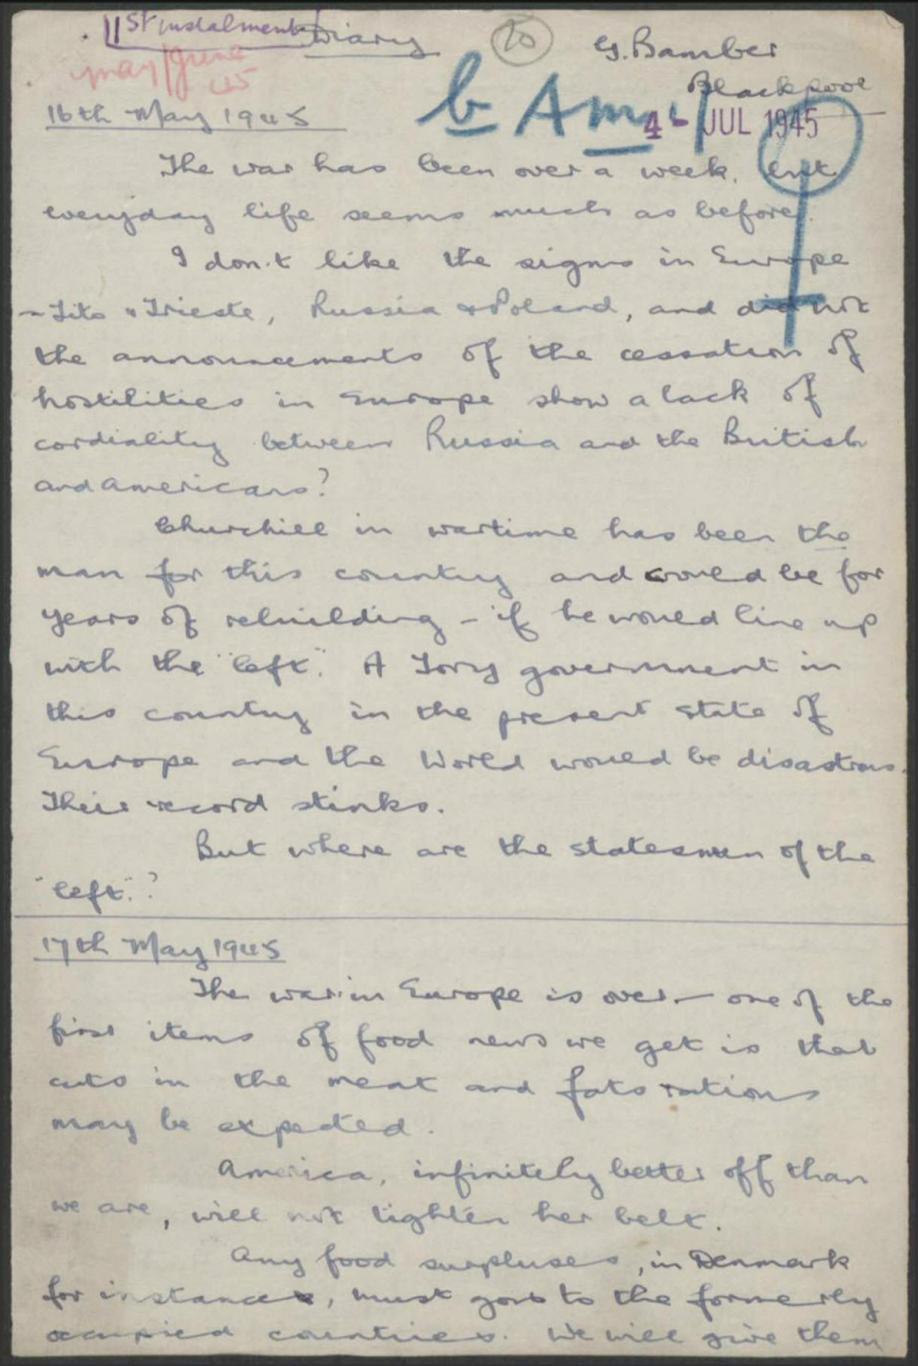 1st instalment Diary 20 G. Bamber
May/June 45 Blackpool
16th May 1945
4 - JUL 1945
The war has been over a week, but
everyday life seems much as before.
I don't like the signs in Europe
- Tito & Trieste, Russia & Poland, and did not
the announcements of the cessation of
hostilities in Europe show a lack of
cordiality between Russia and the British
and Americans?
Churchill in wartime has been the
man for this country and could be for
years of rebuilding - if he would line up
with the "left". A Tory government in
this country in the present state of
Europe and the World would be disastrous.
Their record stinks.
But where are the statesmen of the
"left"?
17th May 1945
The war in Europe is over - one of the
first items of food news we get is that
cuts in the meat and fats rations
may be expected.
America, infinitely better off than
we are, will not tighten her belt.
Any food surpluses, in Denmark
for instance, must go to the formerly
occupied countries. We will give them